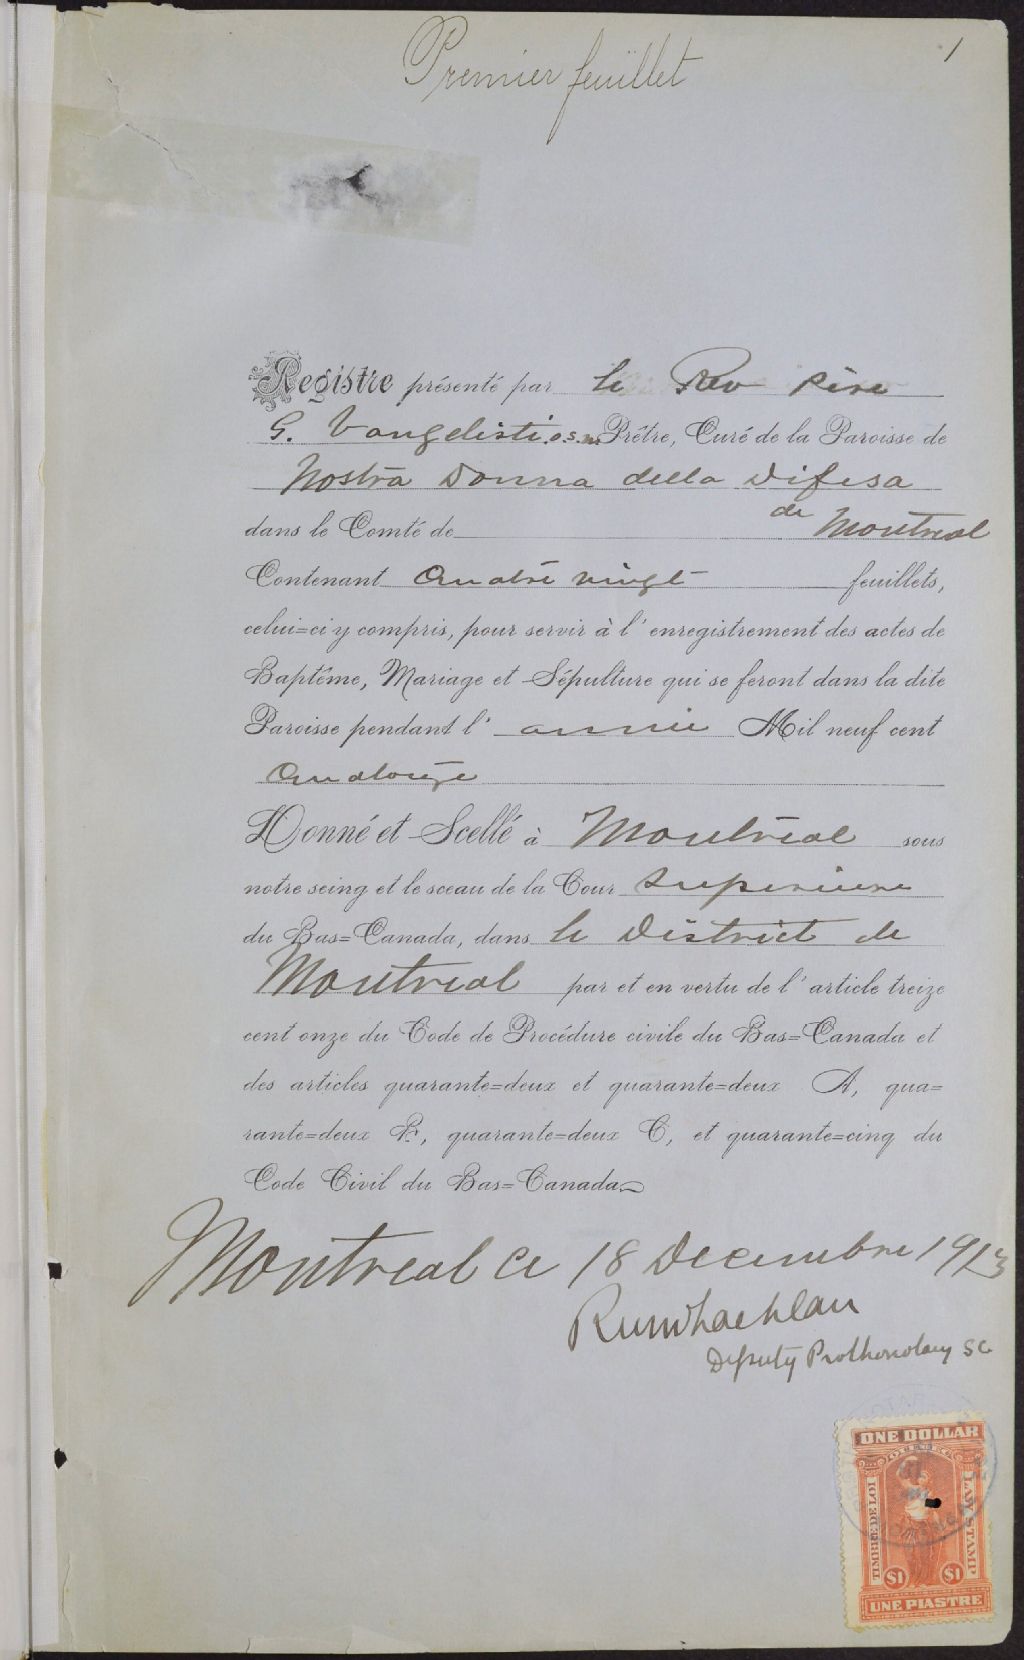 Premier feuillet
1
Registre présenté par le Rev Père
G. Vangelisti o.s.m. Prêtre, Curé de la Paroisse de
Nostra Donna della Difesa
dans le Comté de de Montreal
Contenant Quatre vingt feuillets,
celui=ci y compris, pour servir à l'enregistrement des actes de
Baptême, Mariage et Sépulture qui se feront dans la dite
Paroisse pendant l'année Mil neuf cent
Quatorze
Donné et Scellé à Montréal sous
notre seing et le sceau de la Cour Superieure
du Bas=Canada, dans le District de
Montreal par et en vertu de l'article treize
cent onze du Code de Procédure civile du Bas=Canada et
des articles quarante=deux et quarante=deux A, qua=
rante=deux B, quarante=deux C, et quarante=cinq du
Code Civil du Bas=Canada
Montreal ce 18 Decembre 1913
Deputy Prothonotary SC
ONE DOLLAR
TIMBRE DE LOI
LAW STAMP
$1 $1
UNE PIASTRE